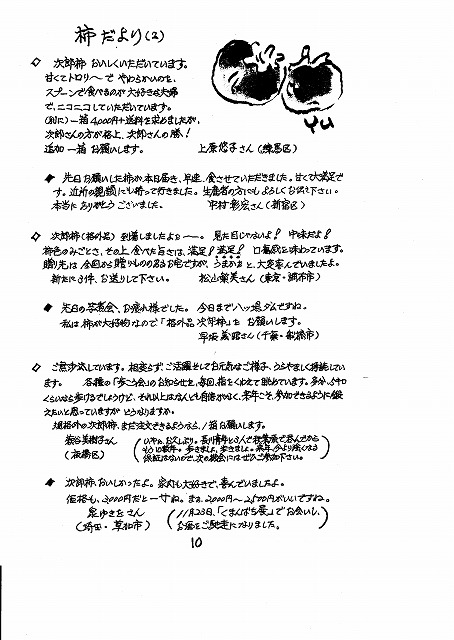 柿だより(2)
YU
◇ 次郎柿 おいしくいただいています。
甘くてトロリ〜で やわらかいのを、
スプーンで食べるのが大好きな夫婦
で、ニコニコしていただいています。
(別に)一箱 4,000円+送料を求めましたが、
次郎さんの方が格上、次郎さんの勝!
追加 一箱 お願いします。 上原悠子さん(練馬区)
◆ 先日お願いした柿が、本日届き、早速、食させていただきました。甘くて大満足で
す。近所の親類にも持って行きました。生産者の方にもよろしくお伝え下さい。
本当に ありがとう ございました。 中村彰宏さん(新宿区)
◇ 次郎柿(格外品) 到着しましたよぉー。 見た目じゃないよ! 中味だよ!
柿色のみごとさ、その上 食べた旨さは、満足!満足! 口福感を味わっています。
贈り先は 今回から贈りものの名はお宅ですが、うまかぁと、大変喜んでいましたよ。
新たに3件、お送りして下さい。 松山留美さん(東京・調布市)
◆ 先日の芸煮会、お疲れ様でした。 今日まで八ッ場ダムですね。
私は 柿が大好物なので「格外品 次郎柿」を お願いします。
早坂義昭さん(千葉・船橋市)
◇ ご無沙汰しています。相変らず、ご活躍そしてお元気なご様子、うらやましく拝読してい
ます。 各種の「歩こう会」のお知らせを、毎回、指をくわえて眺めています。多分、5キロ
くらいなら歩けるでしょうけど、それ以上はなんとも自信がなく、来年こそ、参加できるように鍛え
たいと思っていますが どうなりますか。
規格外の次郎柿、まだ注文できるようなら、1箱お願いします。
岩谷美樹子さん
(板橋区)
(いやぁ、お久しぶり。長川青年らとんで
もう10数年。歩きましょ、歩きましょ。来年、今より強くなる
保証はないので、次の機会にはぜひご参加下さい。)
◆ 次郎柿、おいしかったよ。家内も大好きで、喜んでいましたよ。
価格も、3,000円だと一寸ね。まぁ、2,000円〜2,500円がいいですね。
泉ゆきとさん
(埼玉・草加市)
(11月23日、「くまんばち展」でお会いし、
お酒をご馳走になりました。)
10